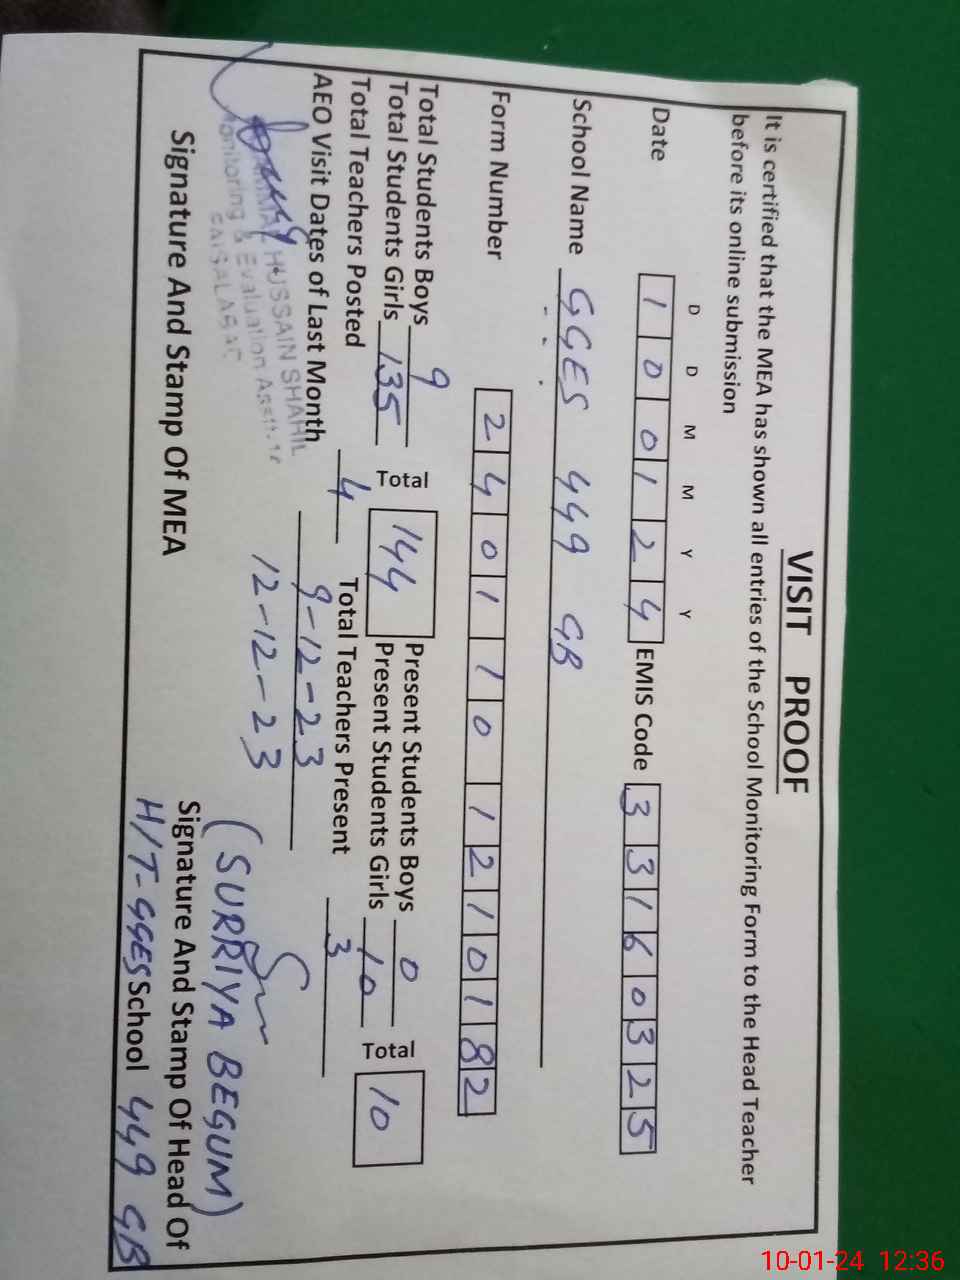 VISIT PROOF
It is certified that the MEA has shown all entries of the School Monitoring Form to the Head Teacher
before its online submission
D D M M Y Y
Date 1 0 0 1 2 4 EMIS Code 3 3 1 6 0 3 2 5
School Name GGES 449 GB
Form Number 2 4 0 1 1 0 1 2 1 0 1 8 2
Total Students Boys 9 Present Students Boys 0
Total 144 Total 10
Total Students Girls 135 Present Students Girls 10
Total Teachers Posted 4 Total Teachers Present 3
AEO Visit Dates of Last Month 9-12-23
12-12-23
HUSSAIN SHAHIL
Monitoring & Evaluation
FAISALABAD
(SURRIYA BEGUM)
Signature And Stamp Of MEA
Signature And Stamp Of Head Of
H/T-GGES School 449 GB
10-01-24 12:36